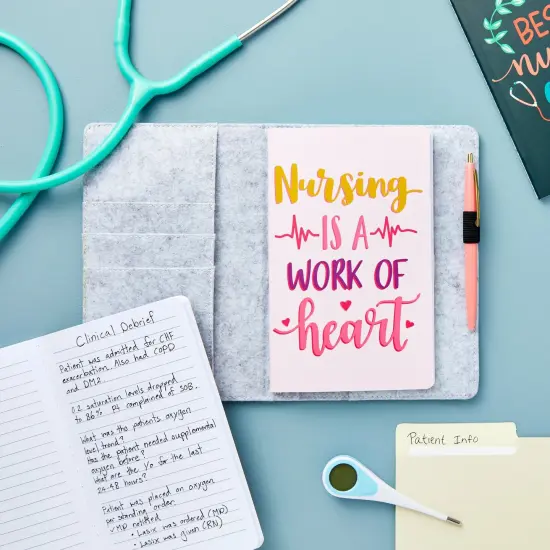 BES
nu
Nursing
IS A
WORK OF
heart
Clinical Debrief
Patient was admitted for CHF
exacerbation. Also had COPD
and DM2
O.2 saturation levels dropped
to 86% Pt complained of SOB.
What was the patients oxygen
level trend?
Has the patient needed supplemental
oxygen before?
What are the I/O for the last
24-48 hours?
Patient was placed on oxygen
per standing order.
MD notified
• Lasix was ordered (MD)
• Lasix was given (RN)
Patient Info